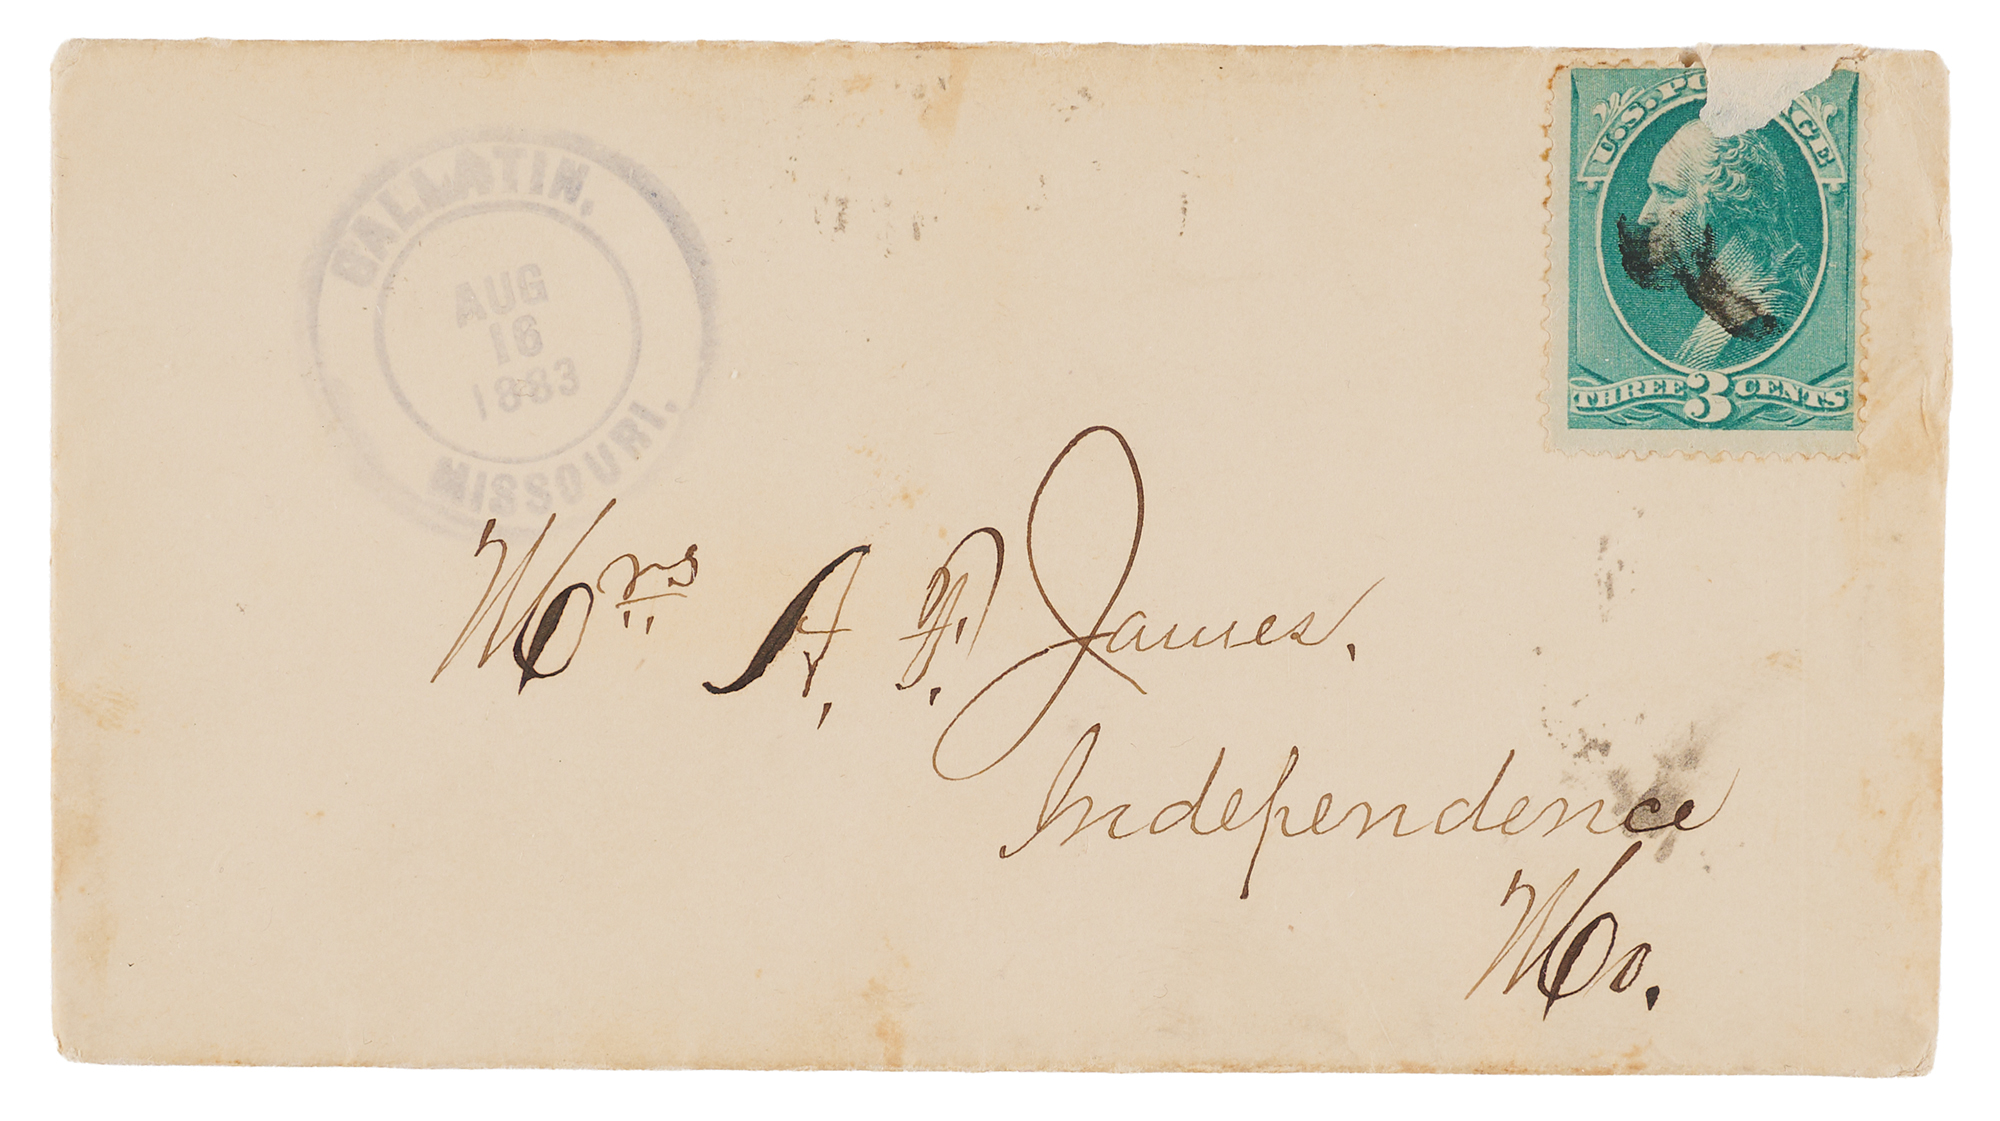 GALLATIN,
AUG
16
1883
MISSOURI.
U.S. PO GE
THREE 3 CENTS
Mrs A. F. James.
Independence
Mo.